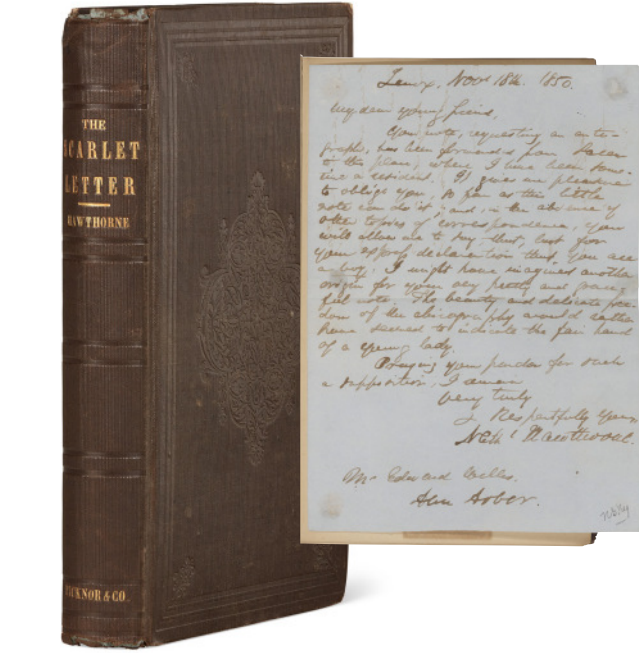 THE
SCARLET
LETTER
HAWTHORNE
TICKNOR & CO.
Lenox, Novr 18th. 1850.
My dear young friend,
Your note, requesting an auto-
graph, has been forwarded from Salem
to this place, where I have been some-
time a resident. It gives me pleasure
to oblige you, so far as this little
note can do it; and, in the absence of
other topics of correspondence, you
will allow me to say, that, but for
your express declaration that you are
a boy, I might have imagined another
origin for your very pretty and grace-
ful note. The beauty and delicate
of the chirography would rather
have seemed to indicate the fair hand
of a young lady.
Craving your pardon for such
a supposition, I am
Very truly
& Respectfully Yours,
Nathl Hawthorne.
Mr Edward
Ann Arbor.